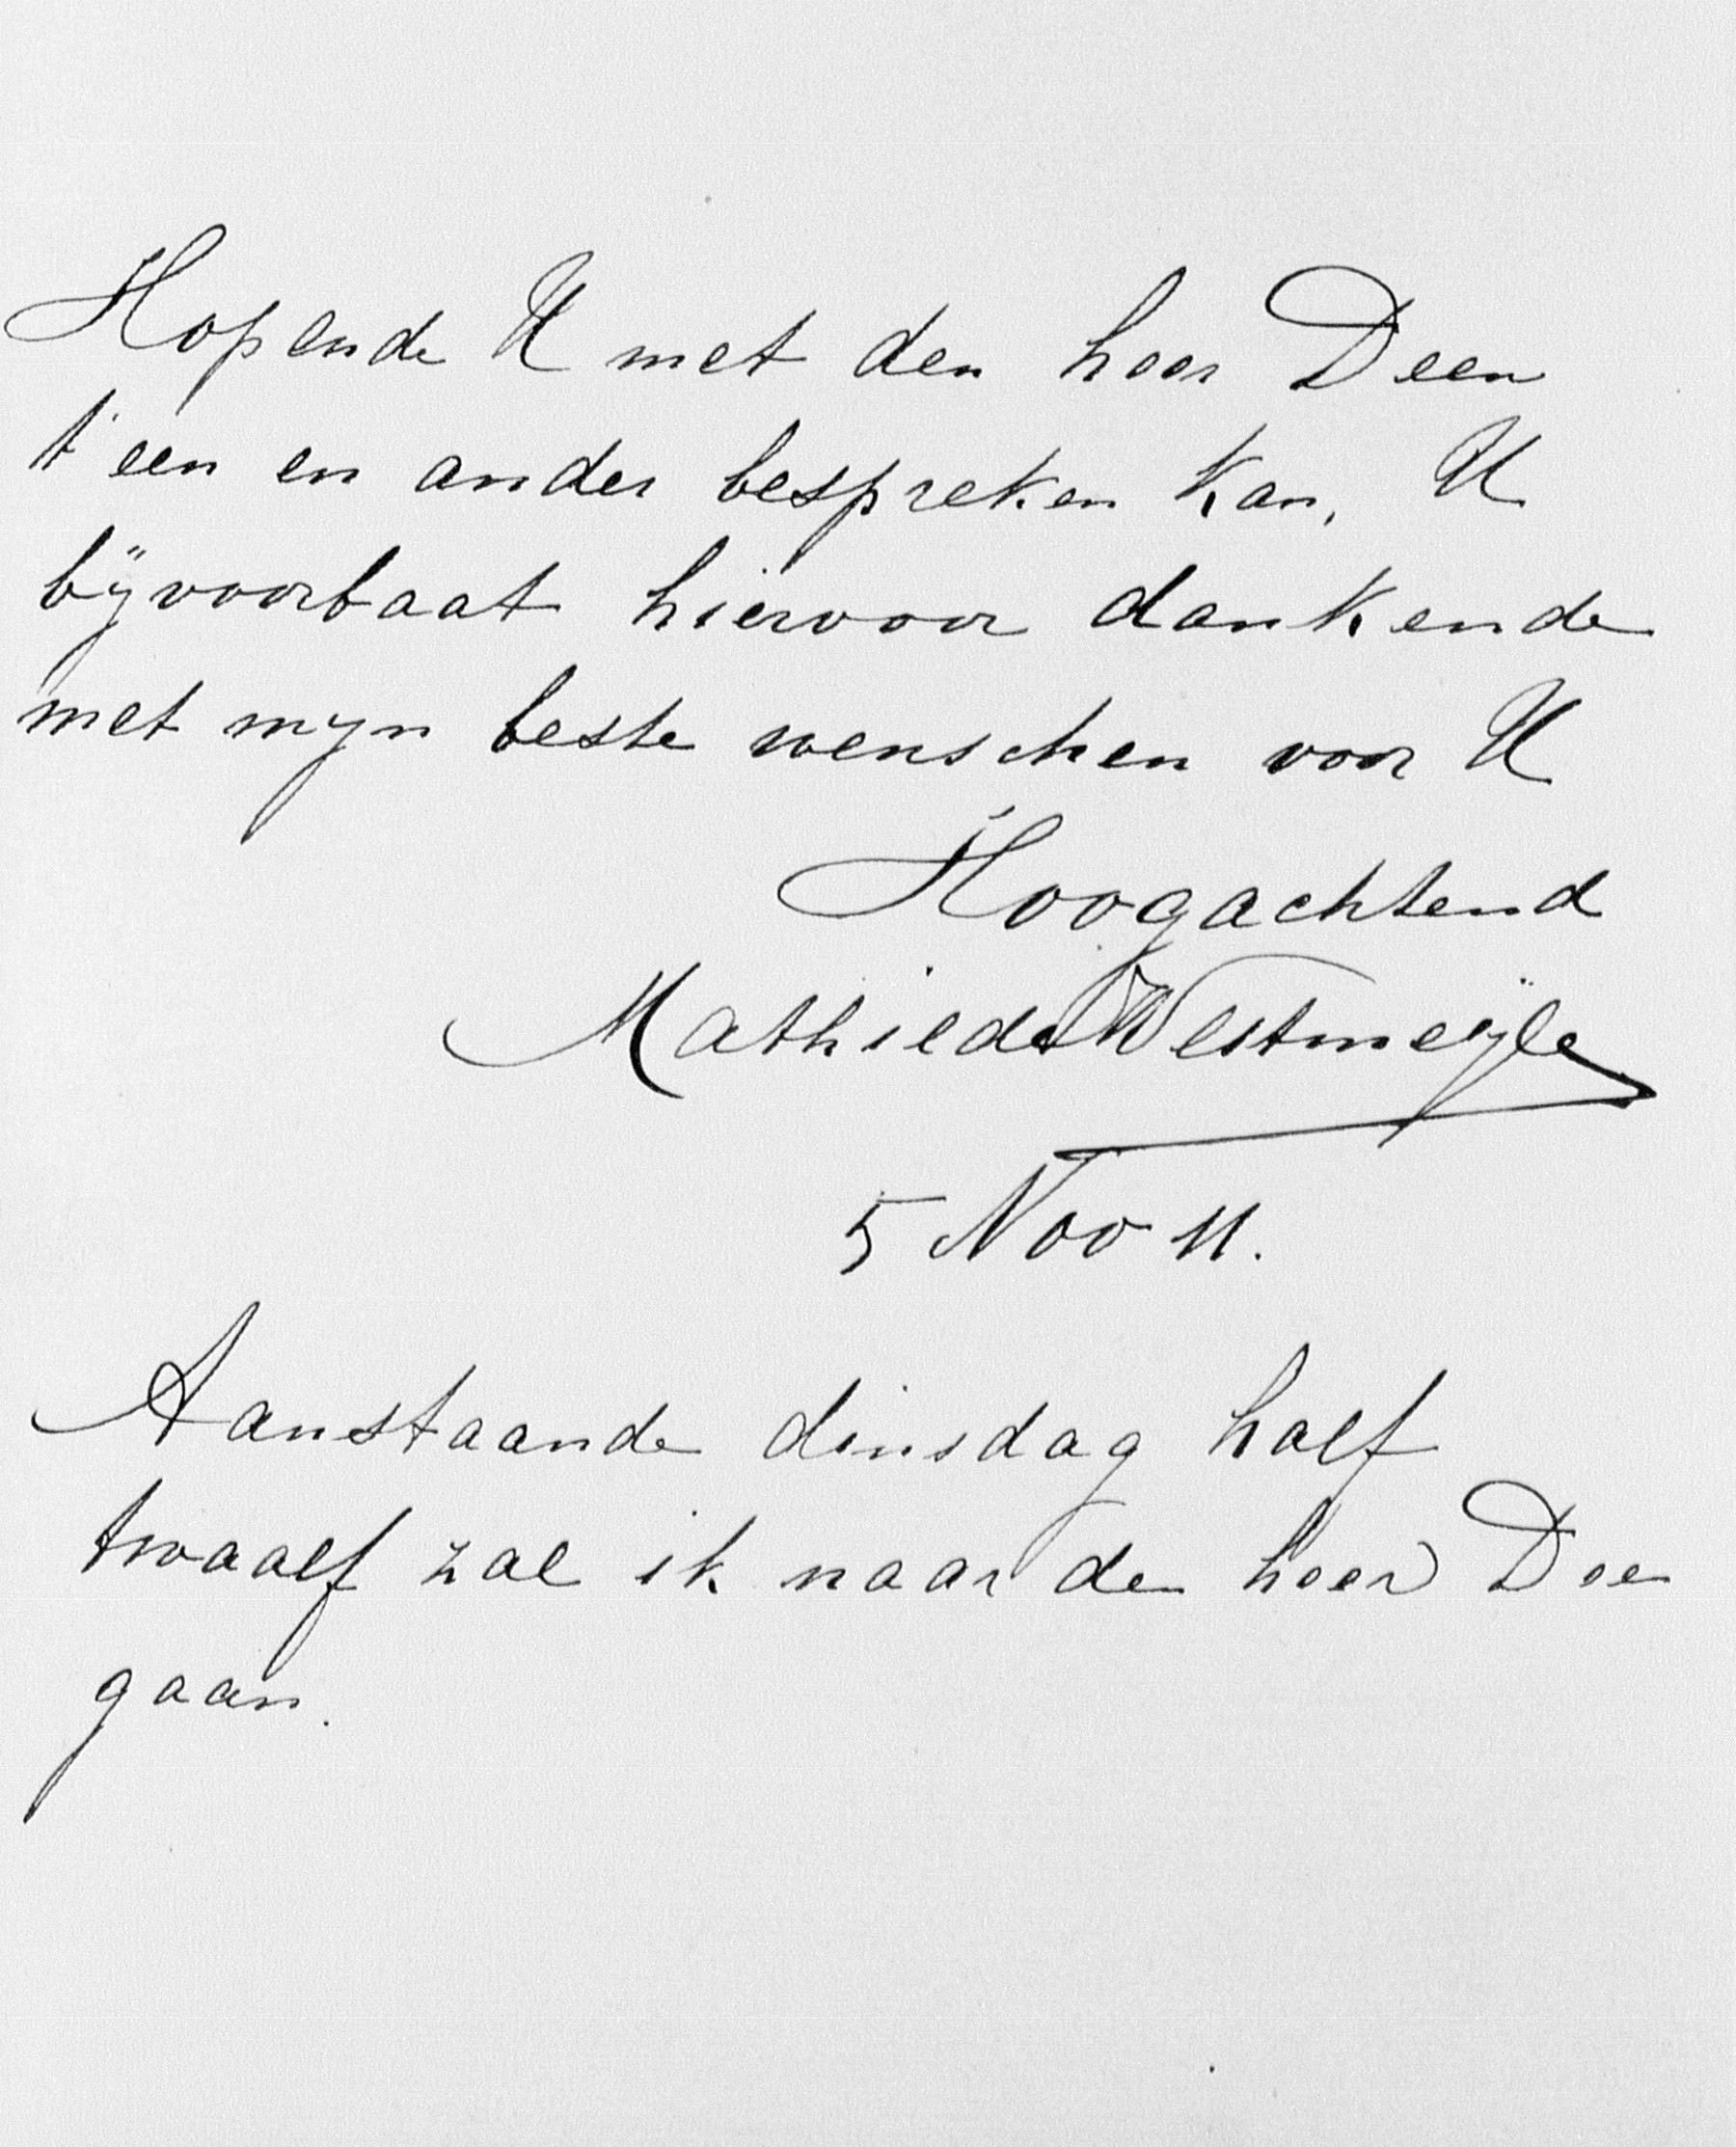 Hopende U met den heer Deen
t'een en ander bespreken kan, U
bijvoorbaat hiervoor dankende
met mijn beste wenschen voor U
Hoogachtend
Mathilde Westmeijle
5 Nov 11.
Aanstaande dinsdag half
twaalf zal ik naar de heer Dee
gaan.